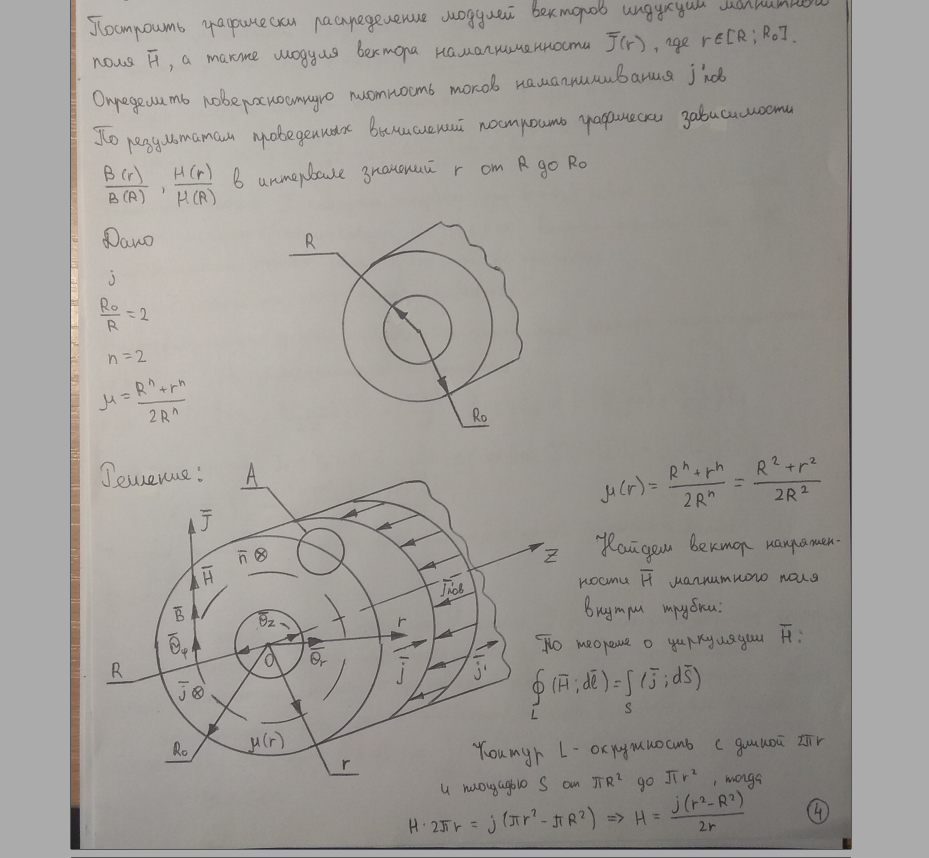 Построить графически распределение модулей векторов индукции магнитного
поля H̅, а также модуля вектора намагниченности J̅(r), где r∈[R; R₀].
Определить поверхностную плотность токов намагничивания j'пов
По результатам проведенных вычислений построить графически зависимости
B(r)/B(R), H(r)/H(R) в интервале значений r от R до R₀
Дано
j
R₀/R = 2
n = 2
μ = (Rⁿ + rⁿ)/2Rⁿ
R
R₀
Решение:
A
μ(r) = (Rⁿ + rⁿ)/2Rⁿ = (R² + r²)/2R²
J̅
n̅ ⊗
H̅
Z
B̅
Θ̅z
j̅'пов
Θ̅φ
r
O
Θ̅r
R
j̅ ⊗
j̅
j̅'
R₀
μ(r)
r
Найдем вектор напряжен-
ности H̅ магнитного поля
внутри трубки:
По теореме о циркуляции H̅:
∮L (H̅; dl̅) = ∫S (j̅; dS̅)
Контур L - окружность с длиной 2πr
и площадью S от πR² до πr², тогда
H·2πr = j(πr² - πR²) => H = j(r² - R²)/2r
4